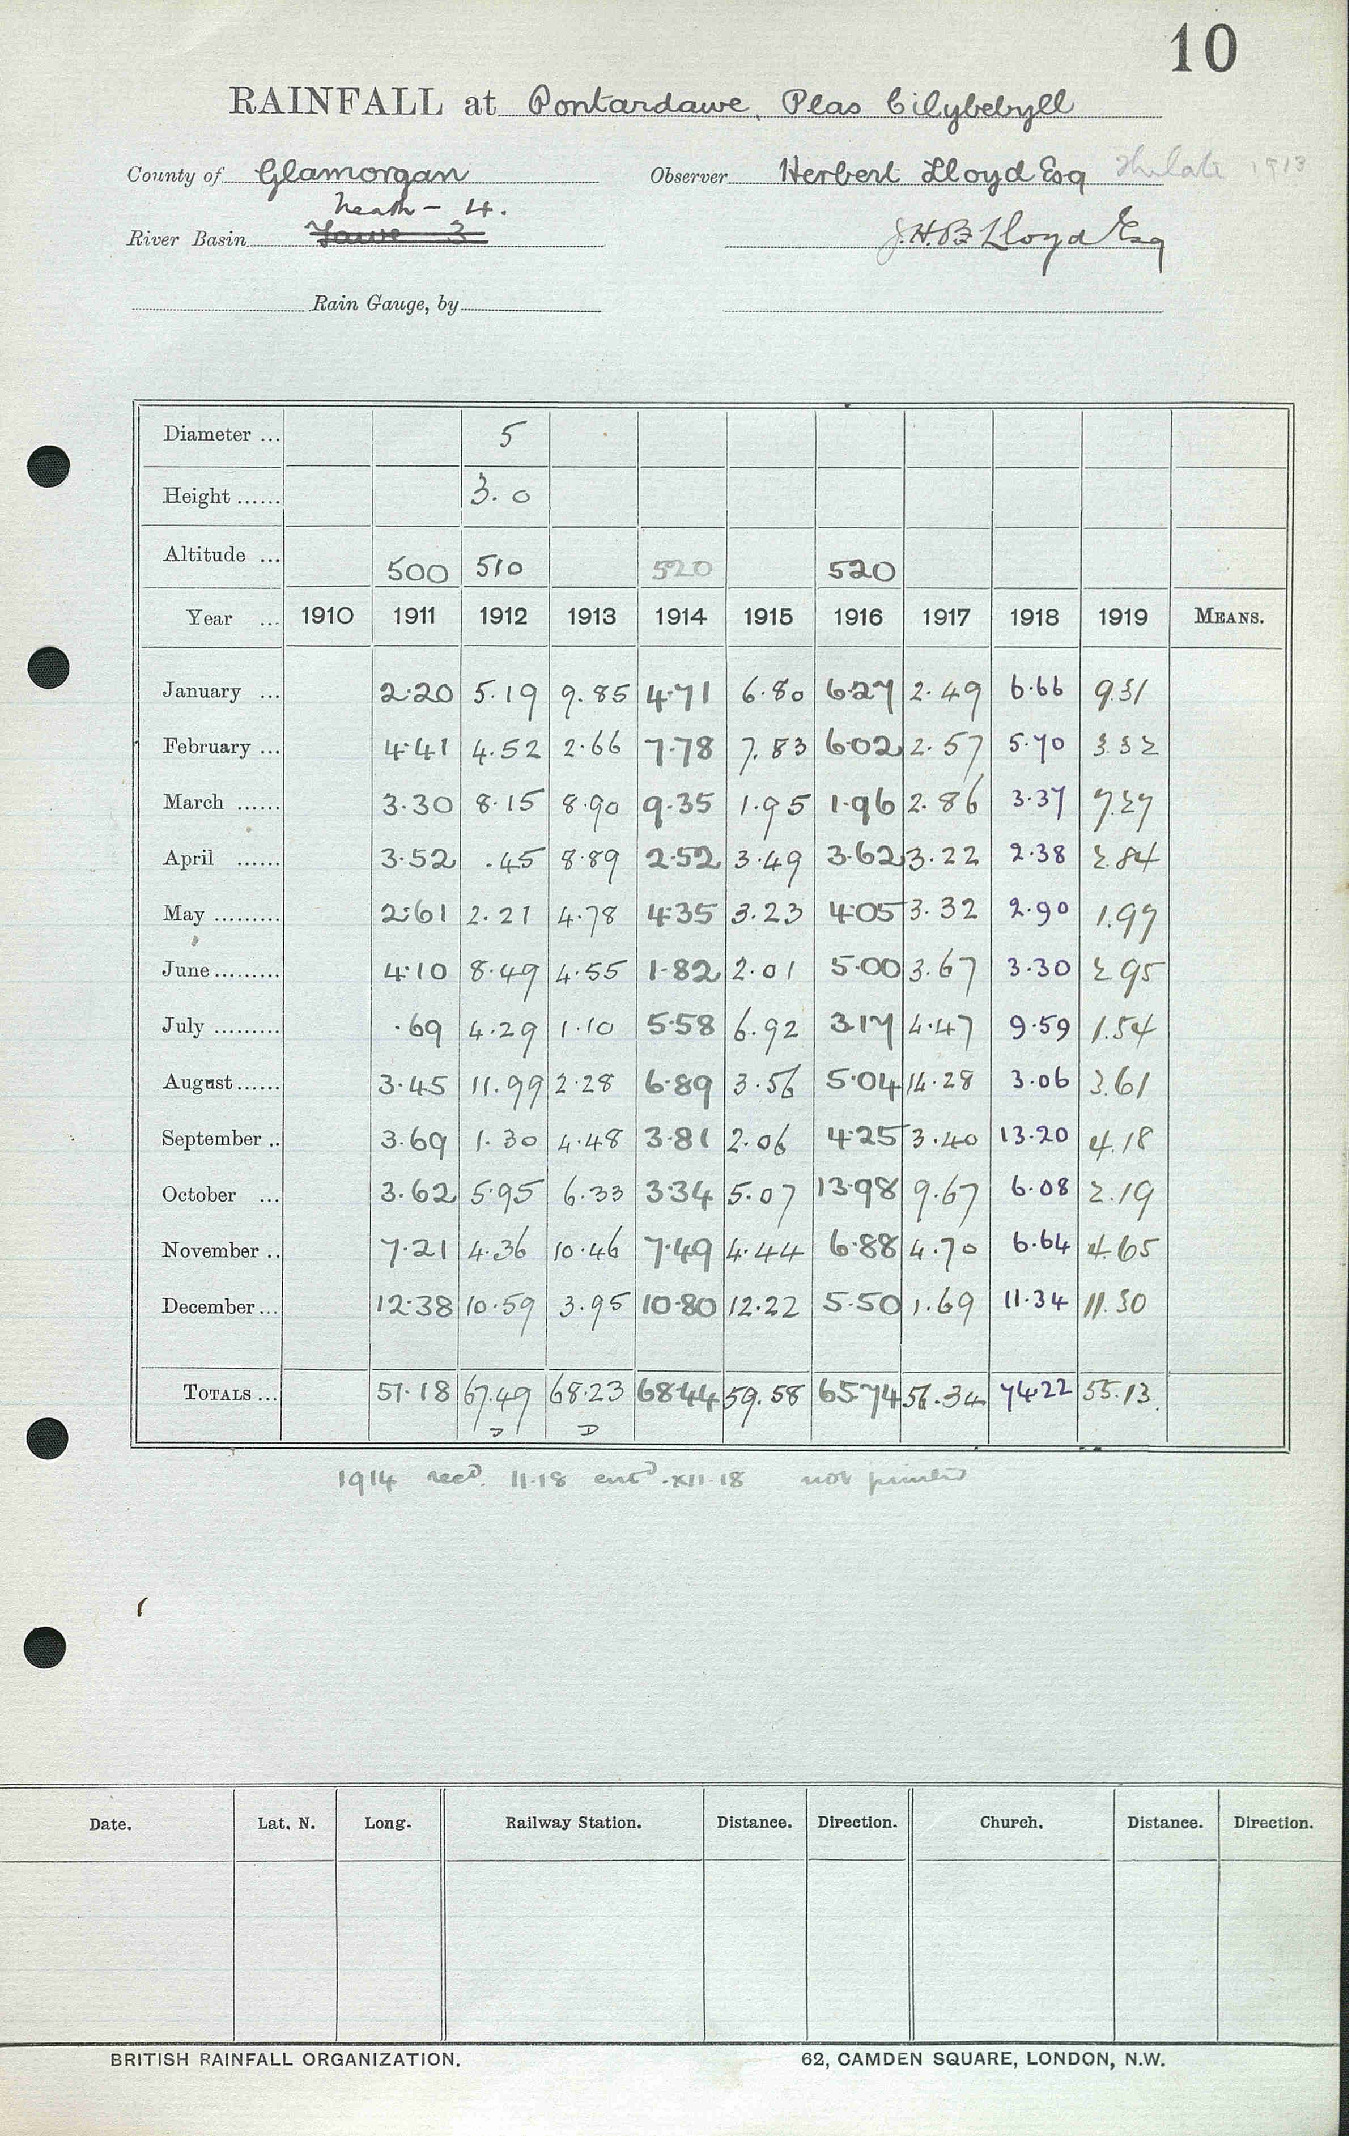 10
RAINFALL at Pontardawe, Plas Cilybebyll
County of Glamorgan Observer Herbert Lloyd Esq the late 1913
Neath - 4.
River Basin Tawe 3 J.H.B Lloyd Esq
Rain Gauge, by
Diameter ... 5
Height ...... 3.0
Altitude ... 500 510 520 520
Year ... 1910 1911 1912 1913 1914 1915 1916 1917 1918 1919 MEANS.
January ... 2.20 5.19 9.85 4.71 6.80 6.27 2.49 6.66 9.31
February ... 4.41 4.52 2.66 7.78 7.83 6.02 2.57 5.70 3.32
March ...... 3.30 8.15 8.90 9.35 1.95 1.96 2.86 3.37 7.27
April ...... 3.52 .45 8.89 2.52 3.49 3.62 3.22 2.38 2.84
May ......... 2.61 2.21 4.78 4.35 3.23 4.05 3.32 2.90 1.97
June ......... 4.10 8.49 4.55 1.82 2.01 5.00 3.67 3.30 2.95
July ......... .69 4.29 1.10 5.58 6.92 3.17 4.47 9.59 1.54
August ...... 3.45 11.99 2.28 6.89 3.56 5.04 14.28 3.06 3.61
September .. 3.69 1.30 4.48 3.81 2.06 4.25 3.40 13.20 4.18
October ... 3.62 5.95 6.33 3.34 5.07 13.98 9.67 6.08 2.19
November .. 7.21 4.36 10.46 7.49 4.44 6.88 4.70 6.64 4.65
December ... 12.38 10.59 3.95 10.80 12.22 5.50 1.69 11.34 11.30
TOTALS ... 51.18 67.49 68.23 68.44 59.58 65.74 56.34 74.22 55.13
1914 recd. 11.18 entd. XII.18 not printed
Date. Lat. N. Long. Railway Station. Distance. Direction. Church. Distance. Direction.
BRITISH RAINFALL ORGANIZATION. 62, CAMDEN SQUARE, LONDON, N.W.